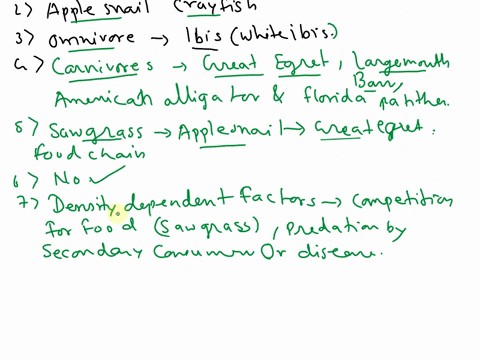 2) Apple snail Crayfish
3) Omnivore → Ibis (white ibis.)
4) Carnivores → Great Egret, Largemouth
Bass,
American alligator & florida panther.
5) Sawgrass → Applesnail → Great egret.
food chain
6) No ✓
7) Density dependent factors → Competition
for food (sawgrass), predation by
Secondary Consumer Or disease.